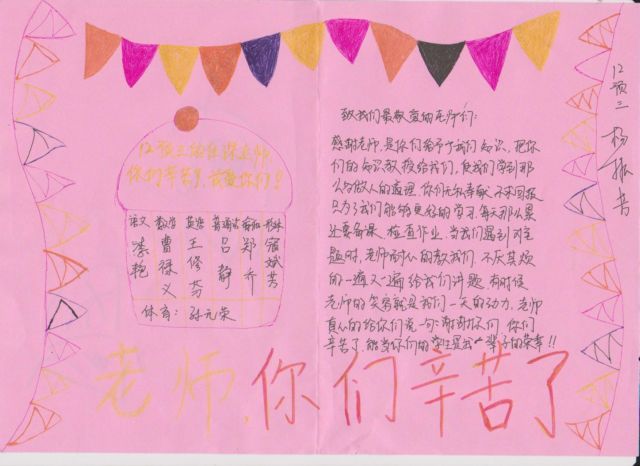 12预三的任课老师,
你们辛苦了,我爱你们!!
语文 数学 英语 普通话
李艳 曹禄义 王修芳 吕静 郑乔 宿斌芳
体育: 孙元荣
致我们最敬爱的老师们:
感谢老师,是你们给予了我们知识,把你
们的知识教授给我们,使我们学到那
么多做人的道理,你们无私奉献,不求回报
只为了我们能够更好的学习,每天那么累
还要备课,检查作业,当我们遇到难
题时,老师耐心的教我们,不厌其烦
的一遍又一遍给我们讲题,有时候
老师的笑容就是我们一天的动力,老师
真心的给你们说一句:谢谢你们,你们
辛苦了,能当你们的学生是我一辈子的荣幸!!
12预三 杨振
老师,你们辛苦了